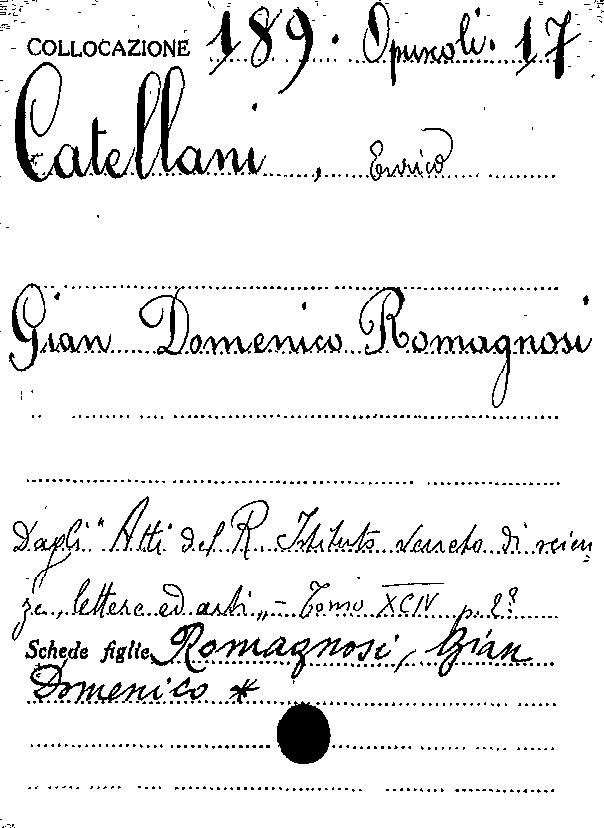 COLLOCAZIONE 189. Opuscoli. 17
Catellani, Enrico
Gian Domenico Romagnosi
Dagli "Atti del R. Istituto veneto di scien
ze, lettere ed arti" - Tomo XCIV p. 2ª
Schede figlie Romagnosi, Gian
Domenico *